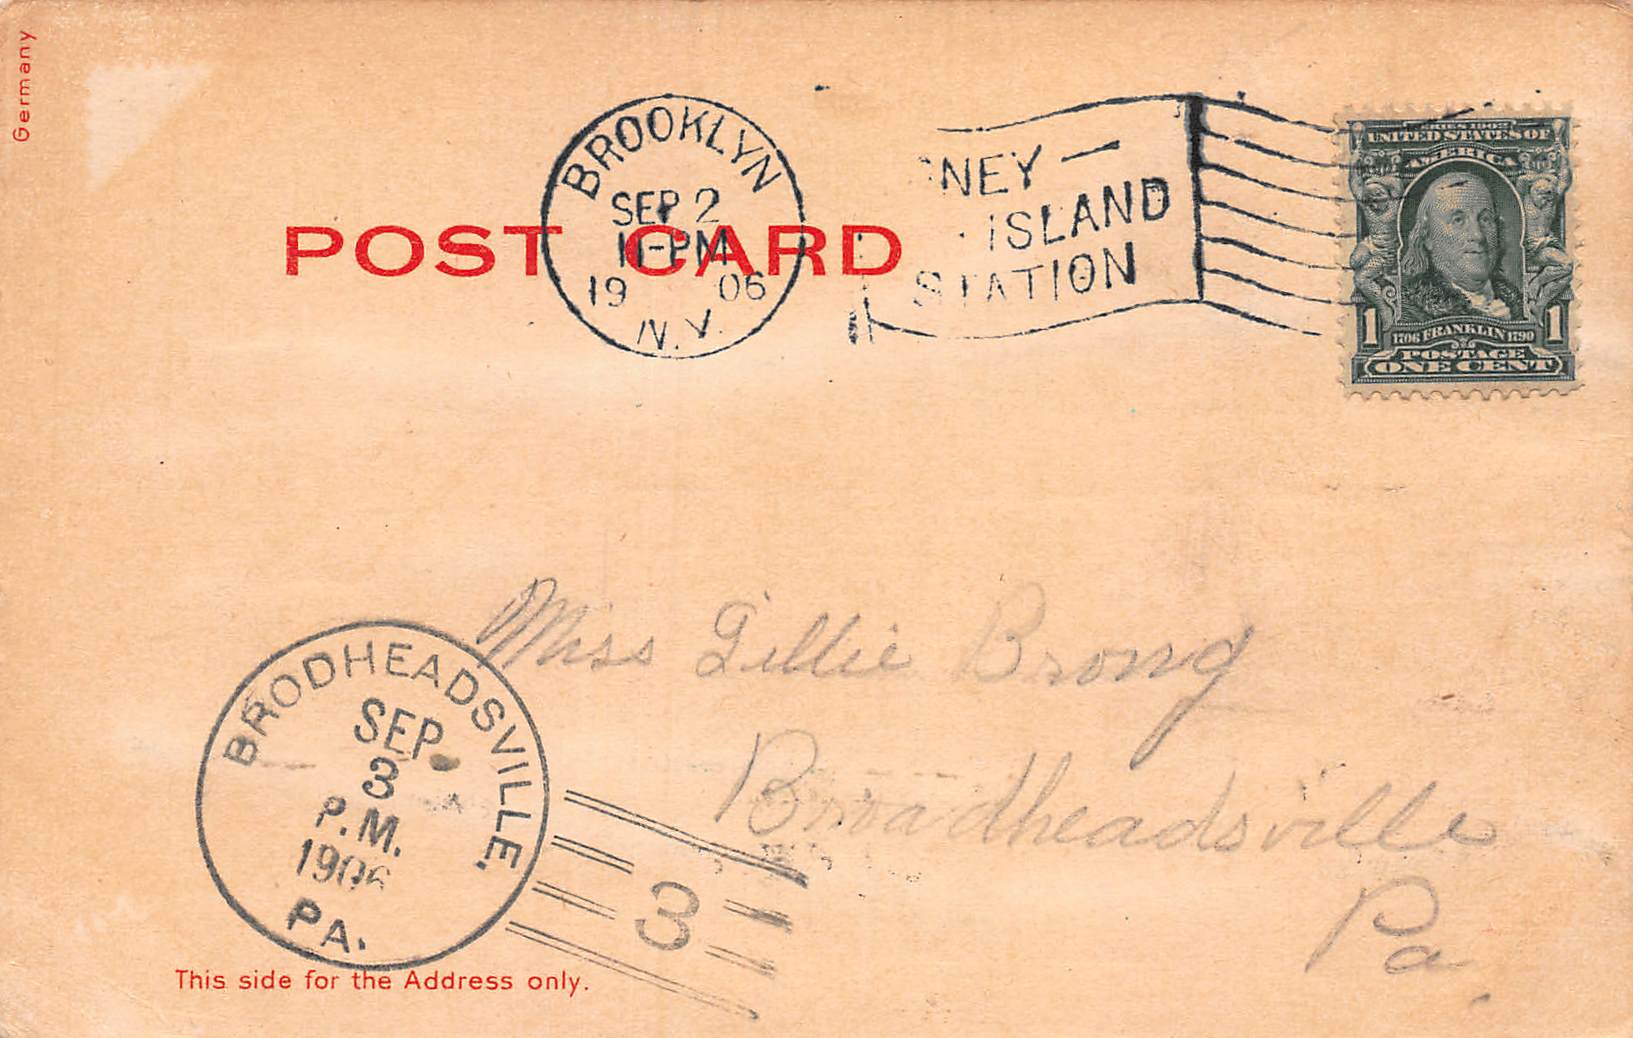 Germany
POST CARD
BROOKLYN
SEP 2
11-PM
19 06
N.Y.
NEY —
ISLAND
STATION
SERIES 1902
UNITED STATES OF
AMERICA
1 1706 FRANKLIN 1790 1
POSTAGE
ONE CENT
Miss Lillie Brong
Broadheadsville
Pa
BRODHEADSVILLE.
SEP
3
P.M.
1906
PA.
3
This side for the Address only.